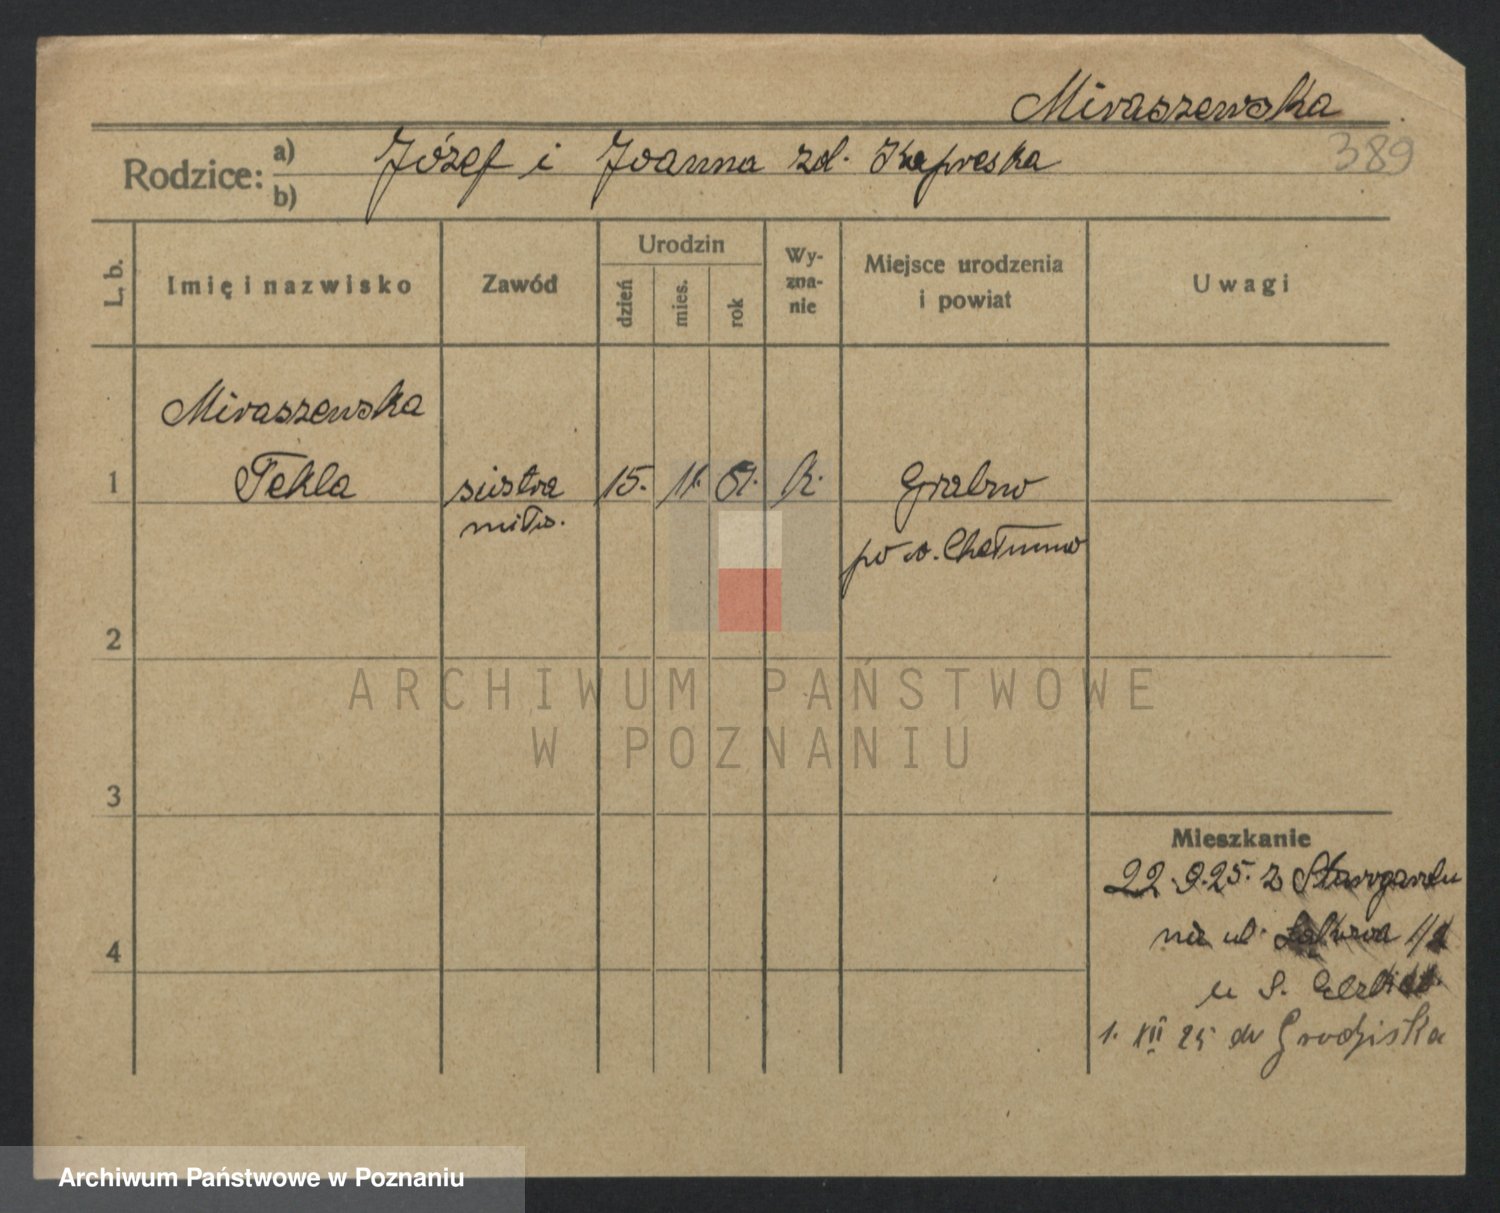 Miraszewska
389
Rodzice: a) Józef i Joanna zd.
b)
L. b.
Imię i nazwisko
Zawód
Urodzin
dzień
mies.
rok
Wy-
zna-
nie
Miejsce urodzenia
i powiat
Uwagi
Miraszewska
1 Tekla siostra 15. 11. k. Grabno
miło. pow. Chełmno
2
ARCHIWUM PAŃSTWOWE
W POZNANIU
3
Mieszkanie
22.9.25. z Starogardu
na ul.
4
u S. Elzbiet.
1. XII 25 do Grodziska
Archiwum Państwowe w Poznaniu